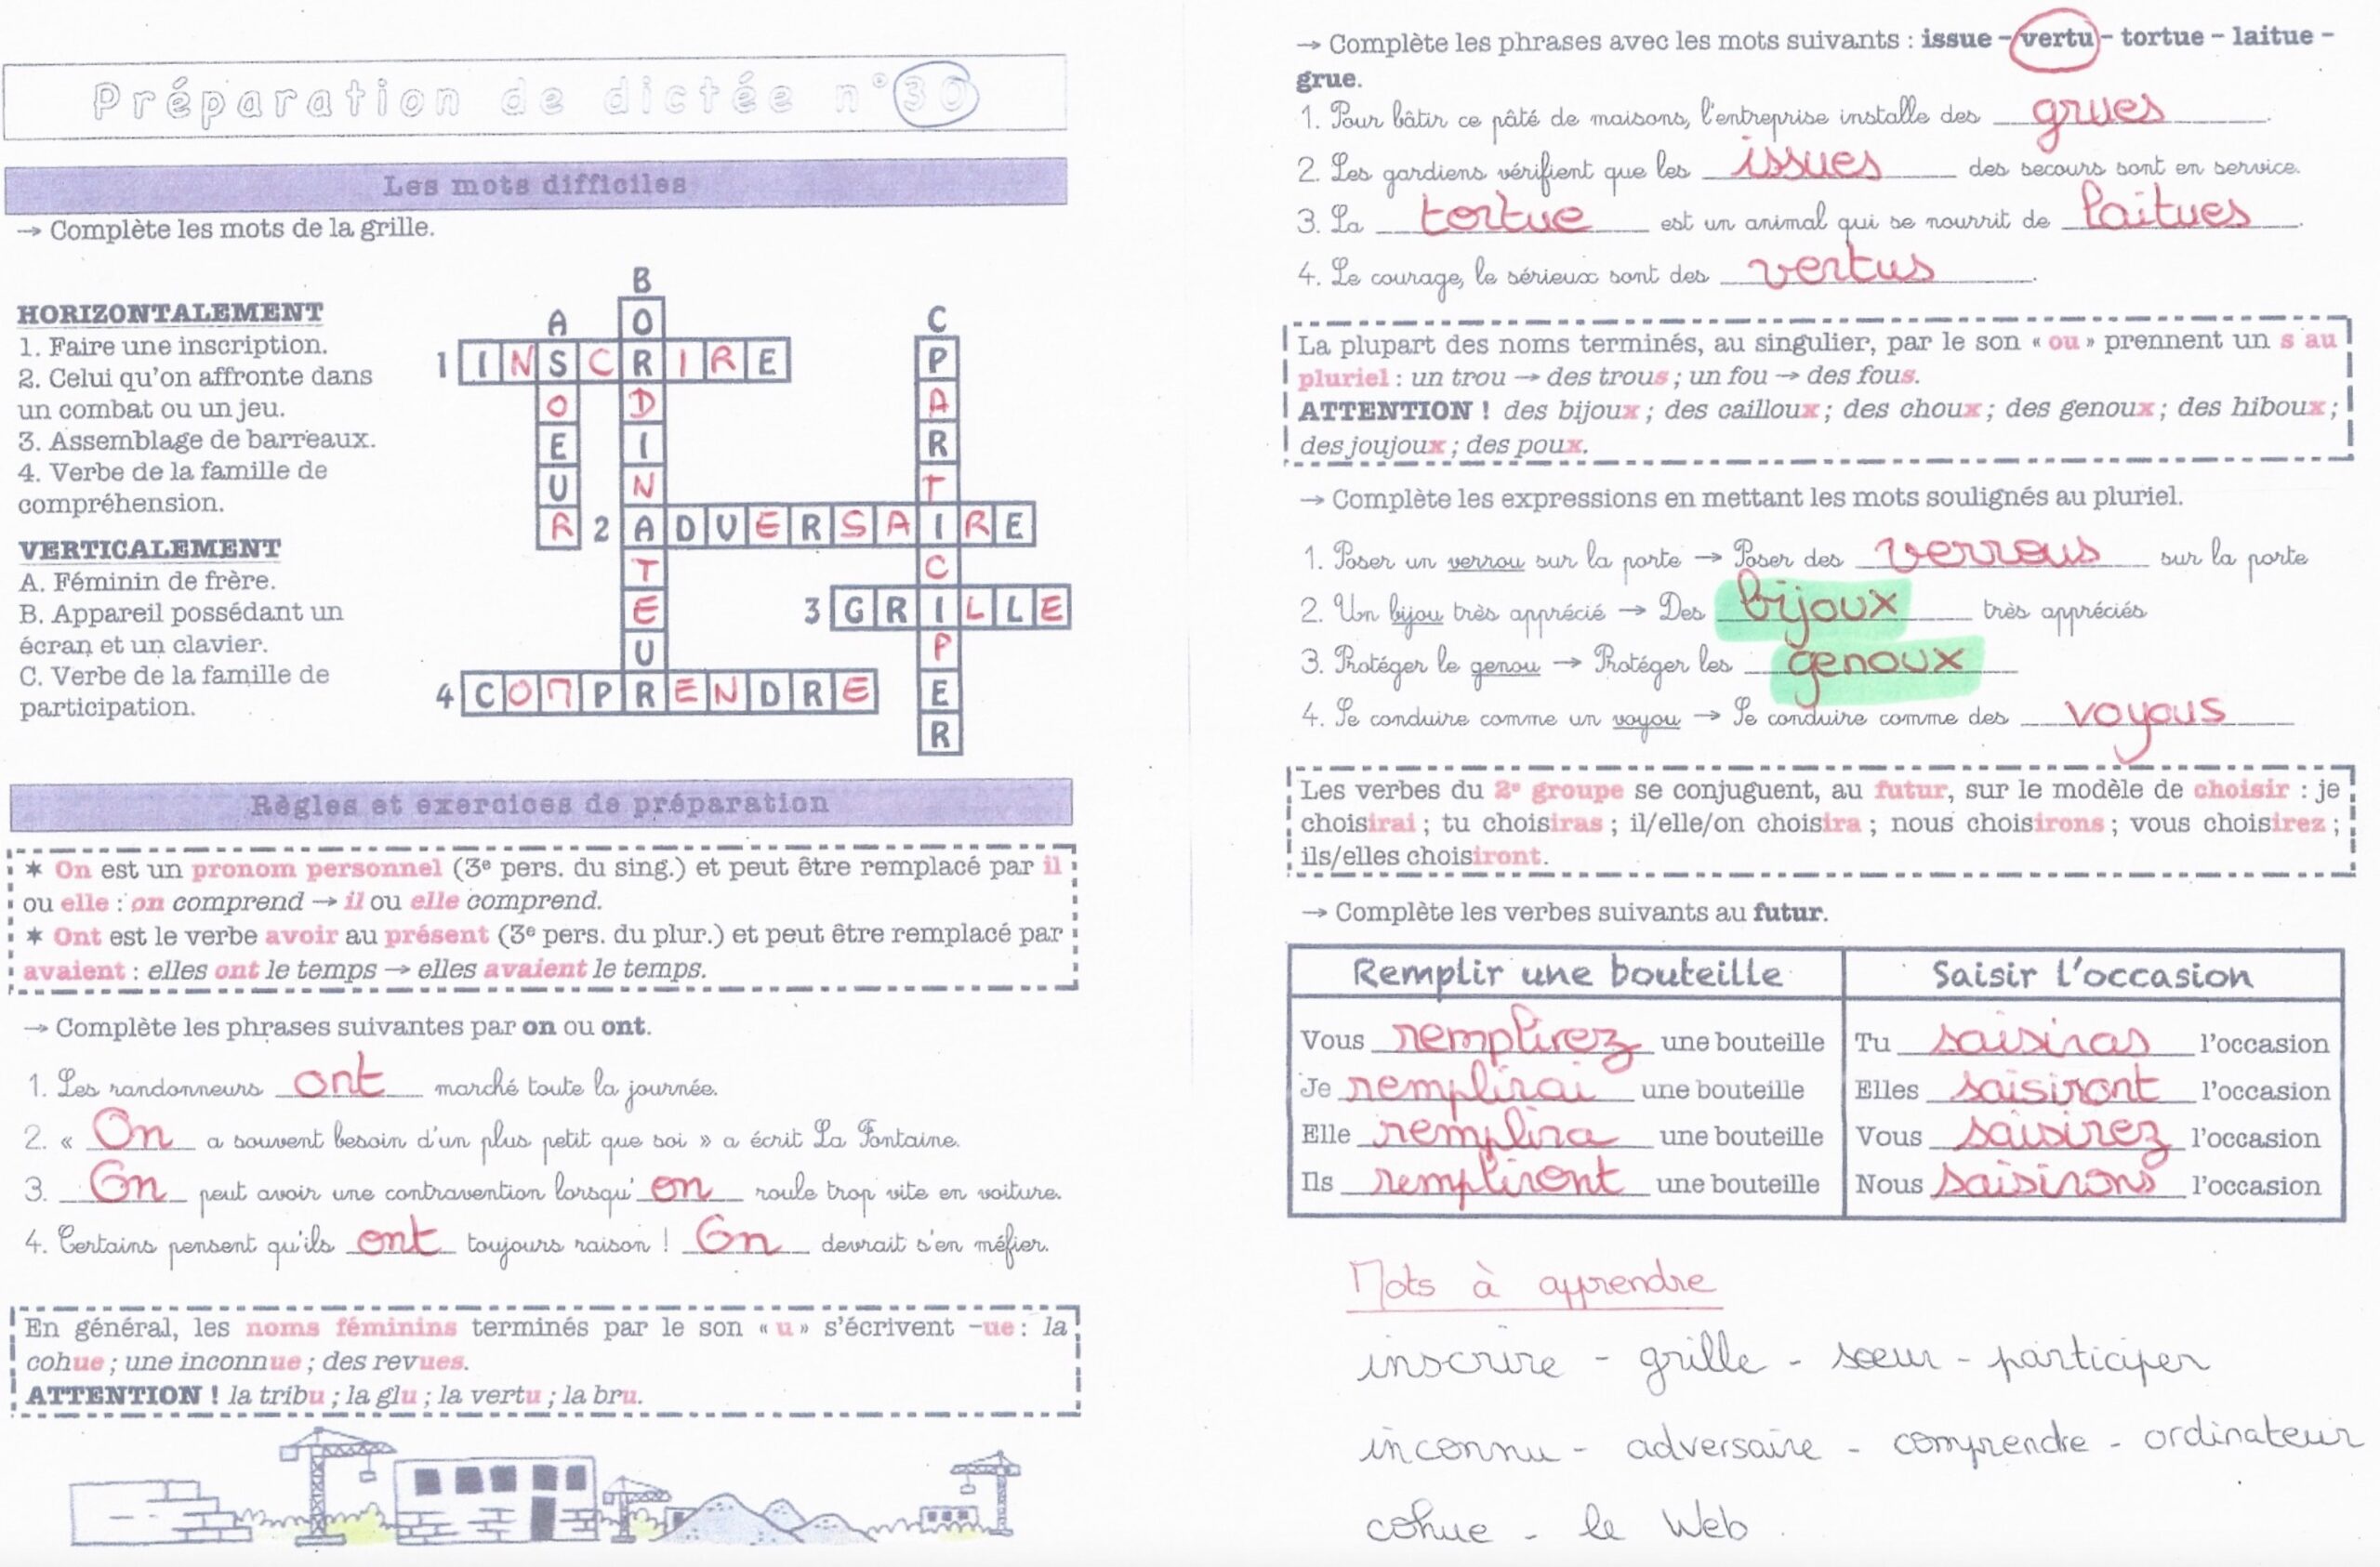 Préparation de dictée n°30
Les mots difficiles
→ Complète les mots de la grille.
HORIZONTALEMENT
1. Faire une inscription.
2. Celui qu'on affronte dans
un combat ou un jeu.
3. Assemblage de barreaux.
4. Verbe de la famille de
compréhension.
VERTICALEMENT
A. Féminin de frère.
B. Appareil possédant un
écran et un clavier.
C. Verbe de la famille de
participation.
A SOEUR
B ORDINATEUR
C PARTICIPER
1 INSCRIRE
2 ADVERSAIRE
3 GRILLE
4 COMPRENDRE
Règles et exercices de préparation
✶ On est un pronom personnel (3e pers. du sing.) et peut être remplacé par il
ou elle : on comprend → il ou elle comprend.
✶ Ont est le verbe avoir au présent (3e pers. du plur.) et peut être remplacé par
avaient : elles ont le temps → elles avaient le temps.
→ Complète les phrases suivantes par on ou ont.
1. Les randonneurs ont marché toute la journée.
2. « On a souvent besoin d'un plus petit que soi » a écrit La Fontaine.
3. On peut avoir une contravention lorsqu'on roule trop vite en voiture.
4. Certains pensent qu'ils ont toujours raison ! On devrait s'en méfier.
En général, les noms féminins terminés par le son « u » s'écrivent –ue : la
cohue ; une inconnue ; des revues.
ATTENTION ! la tribu ; la glu ; la vertu ; la bru.
→ Complète les phrases avec les mots suivants : issue – vertu – tortue – laitue –
grue.
1. Pour bâtir ce pâté de maisons, l'entreprise installe des grues.
2. Les gardiens vérifient que les issues des secours sont en service.
3. La tortue est un animal qui se nourrit de laitues.
4. Le courage, le sérieux sont des vertus.
La plupart des noms terminés, au singulier, par le son « ou » prennent un s au
pluriel : un trou → des trous ; un fou → des fous.
ATTENTION ! des bijoux ; des cailloux ; des choux ; des genoux ; des hiboux ;
des joujoux ; des poux.
→ Complète les expressions en mettant les mots soulignés au pluriel.
1. Poser un verrou sur la porte → Poser des verrous sur la porte
2. Un bijou très apprécié → Des bijoux très appréciés
3. Protéger le genou → Protéger les genoux
4. Se conduire comme un voyou → Se conduire comme des voyous
Les verbes du 2e groupe se conjuguent, au futur, sur le modèle de choisir : je
choisirai ; tu choisiras ; il/elle/on choisira ; nous choisirons ; vous choisirez ;
ils/elles choisiront.
→ Complète les verbes suivants au futur.
Remplir une bouteille
Vous remplirez une bouteille
Je remplirai une bouteille
Elle remplira une bouteille
Ils rempliront une bouteille
Saisir l'occasion
Tu saisiras l'occasion
Elles saisiront l'occasion
Vous saisirez l'occasion
Nous saisirons l'occasion
Mots à apprendre
inscrire - grille - sœur - participer
inconnu - adversaire - comprendre - ordinateur
cohue - le Web.